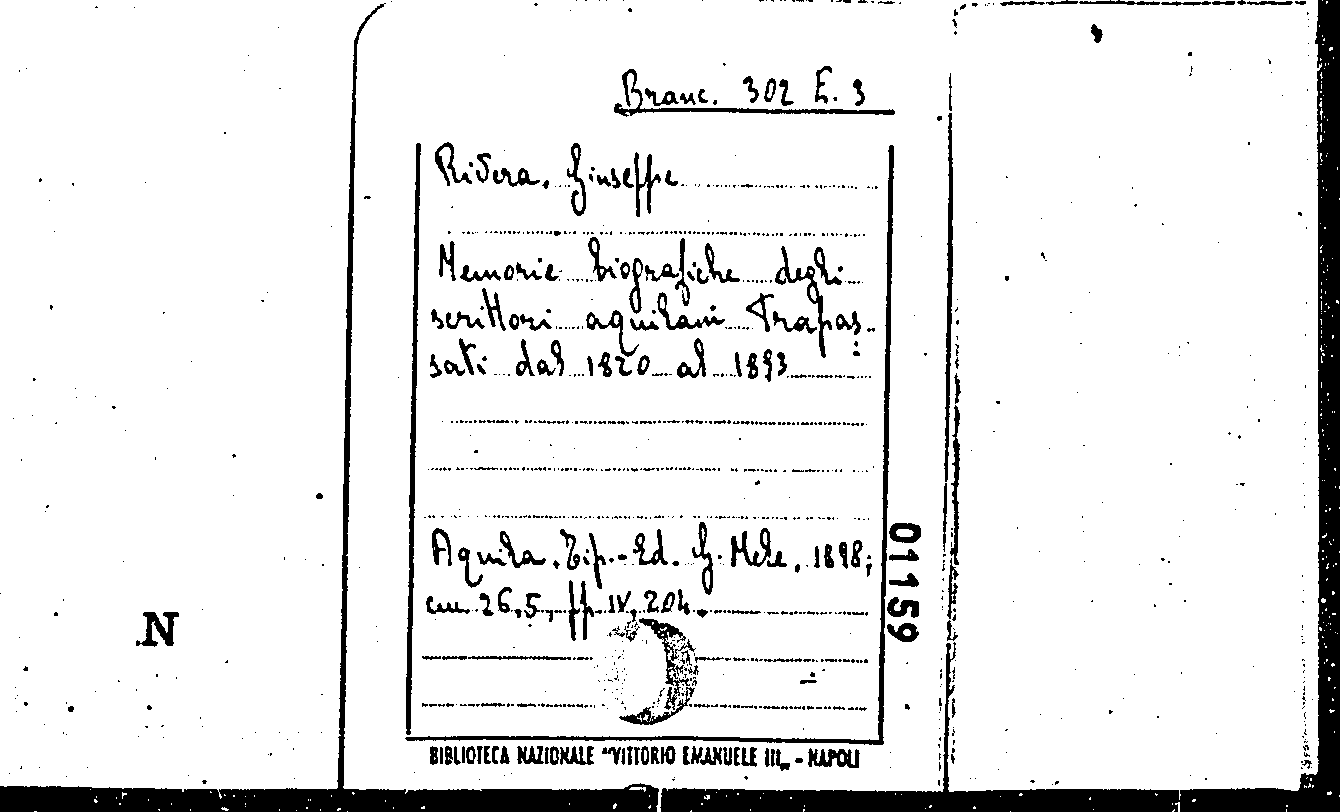 Branc. 302 E. 3
Rivera, Giuseppe
Memorie biografiche degli
scrittori aquilani trapas-
sati dal 1820 al 1893
Aquila, Tip.-Ed. G. Mele, 1898;
cm. 26,5, pp. IV, 204.
01159
N
BIBLIOTECA NAZIONALE "VITTORIO EMANUELE III„ - NAPOLI